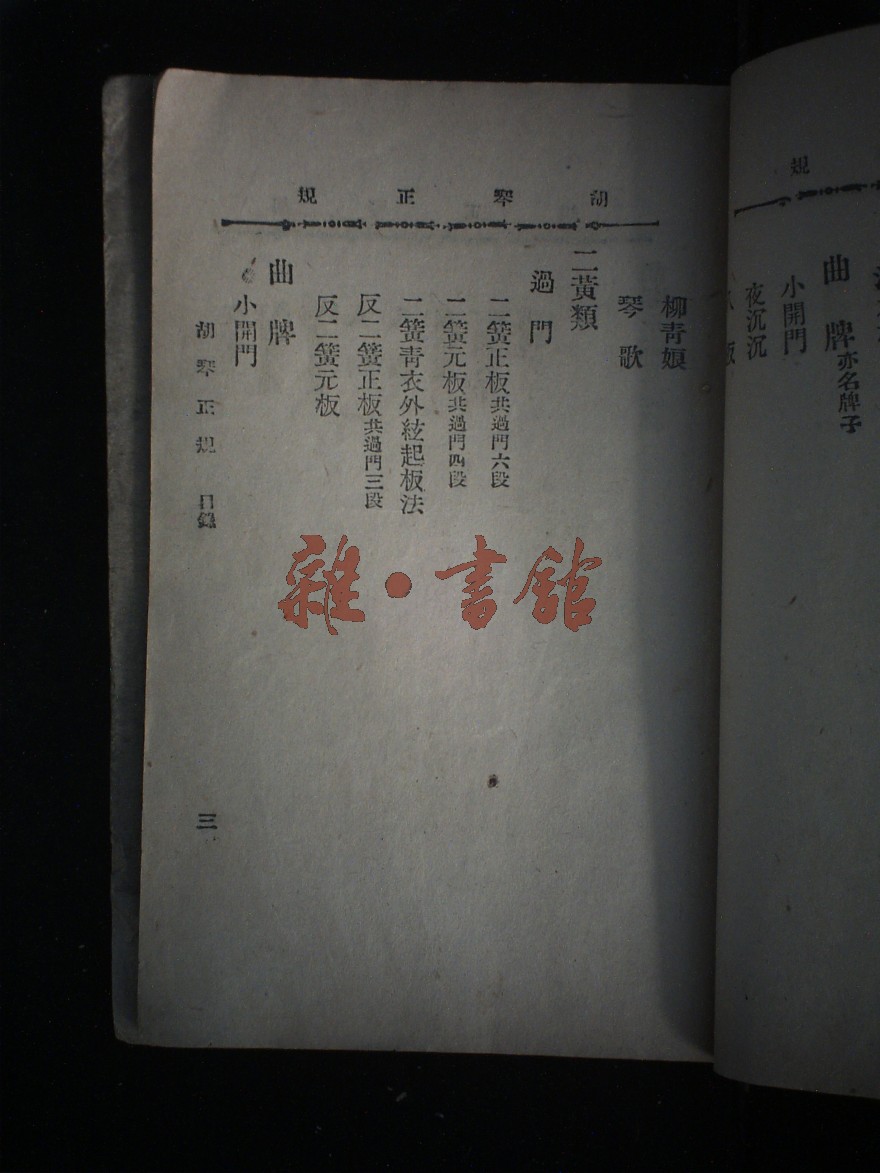 規
曲牌亦名牌子
小開門
夜沉沉
胡琴正規
柳青娘
琴歌
二黃類
過門
二簧正板共過門六段
二簧元板共過門四段
二簧青衣外絃起板法
反二簧正板共過門三段
反二簧元板
曲牌
小開門
胡琴正規 目錄
三
雜·書館